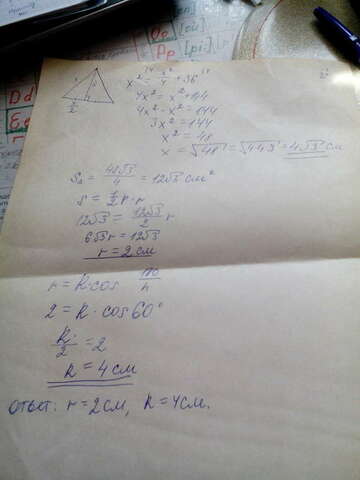 x² = x²/4 + 36
4x² = x² + 144
4x² - x² = 144
3x² = 144
x² = 48
x = √48 = √4·4·3 = 4√3 см
S△ = 48√3/4 = 12√3 см²
S = 1/2 P · r
12√3 = 12√3/2 r
6√3 r = 12√3
r = 2 см
r = R · cos 180/n
2 = R · cos 60°
R/2 = 2
R = 4 см
ответ: r = 2 см, R = 4 см.